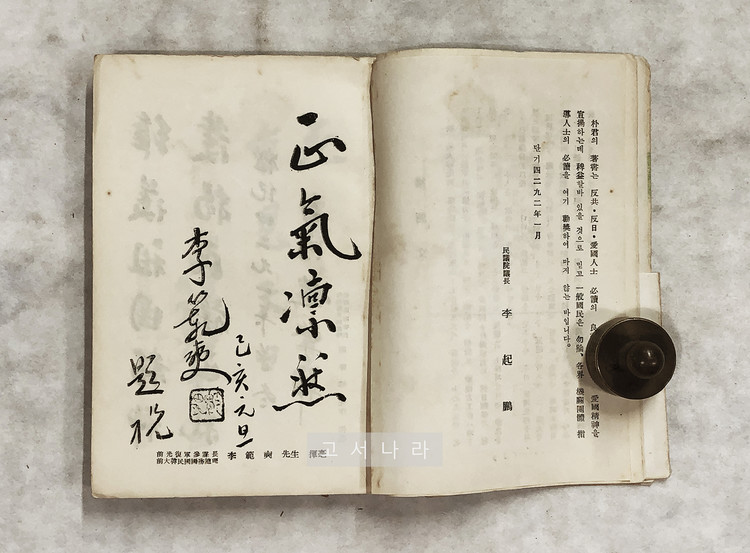 朴君의 著書는 反共·反日·愛國人士 必讀의 良 愛國精神을
宣揚하는데 裨益할바 있을 것으로 믿고 一般國民은 勿論、各界 機關團體 指
導人士의 必讀을 여기 勸奬하여 마지 않는 바입니다。
단기四二九二年一月
民議院議長 李起鵬
正氣凜然
己亥元旦
李範奭
題祝
前光復軍參謀長
前大韓民國國務總理
李範奭 先生 揮毫
고서나라